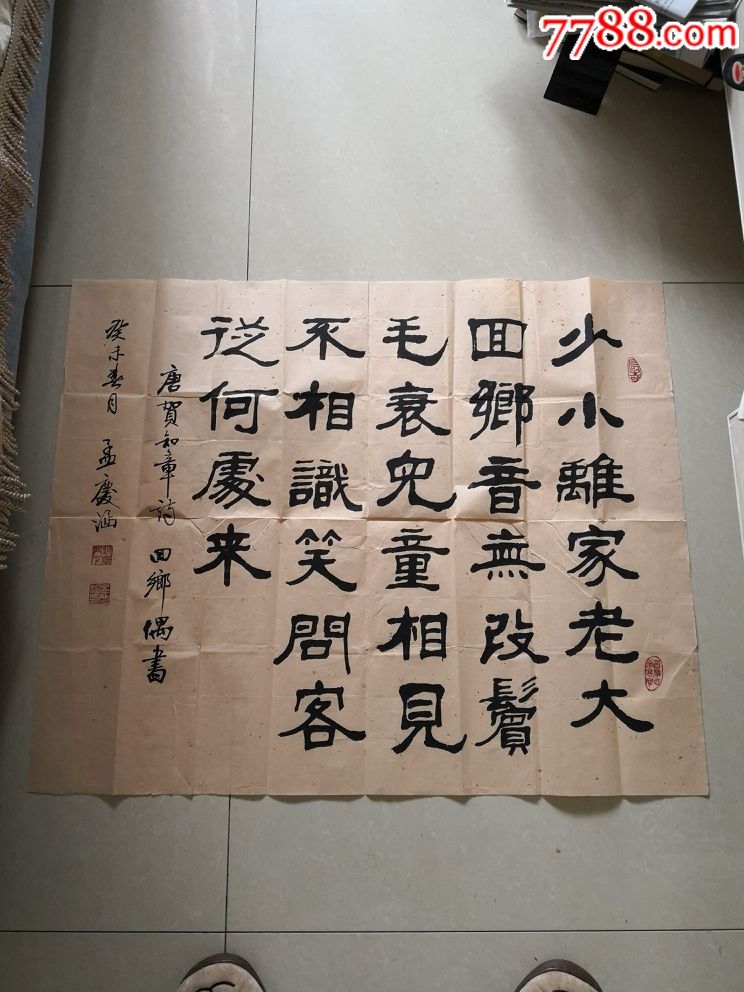 7788.com
少小離家老大
回鄉音無改鬢
毛衰兒童相見
不相識笑問客
從何處来
唐賀知章詩回鄉偶書
癸未春月 孟慶涵